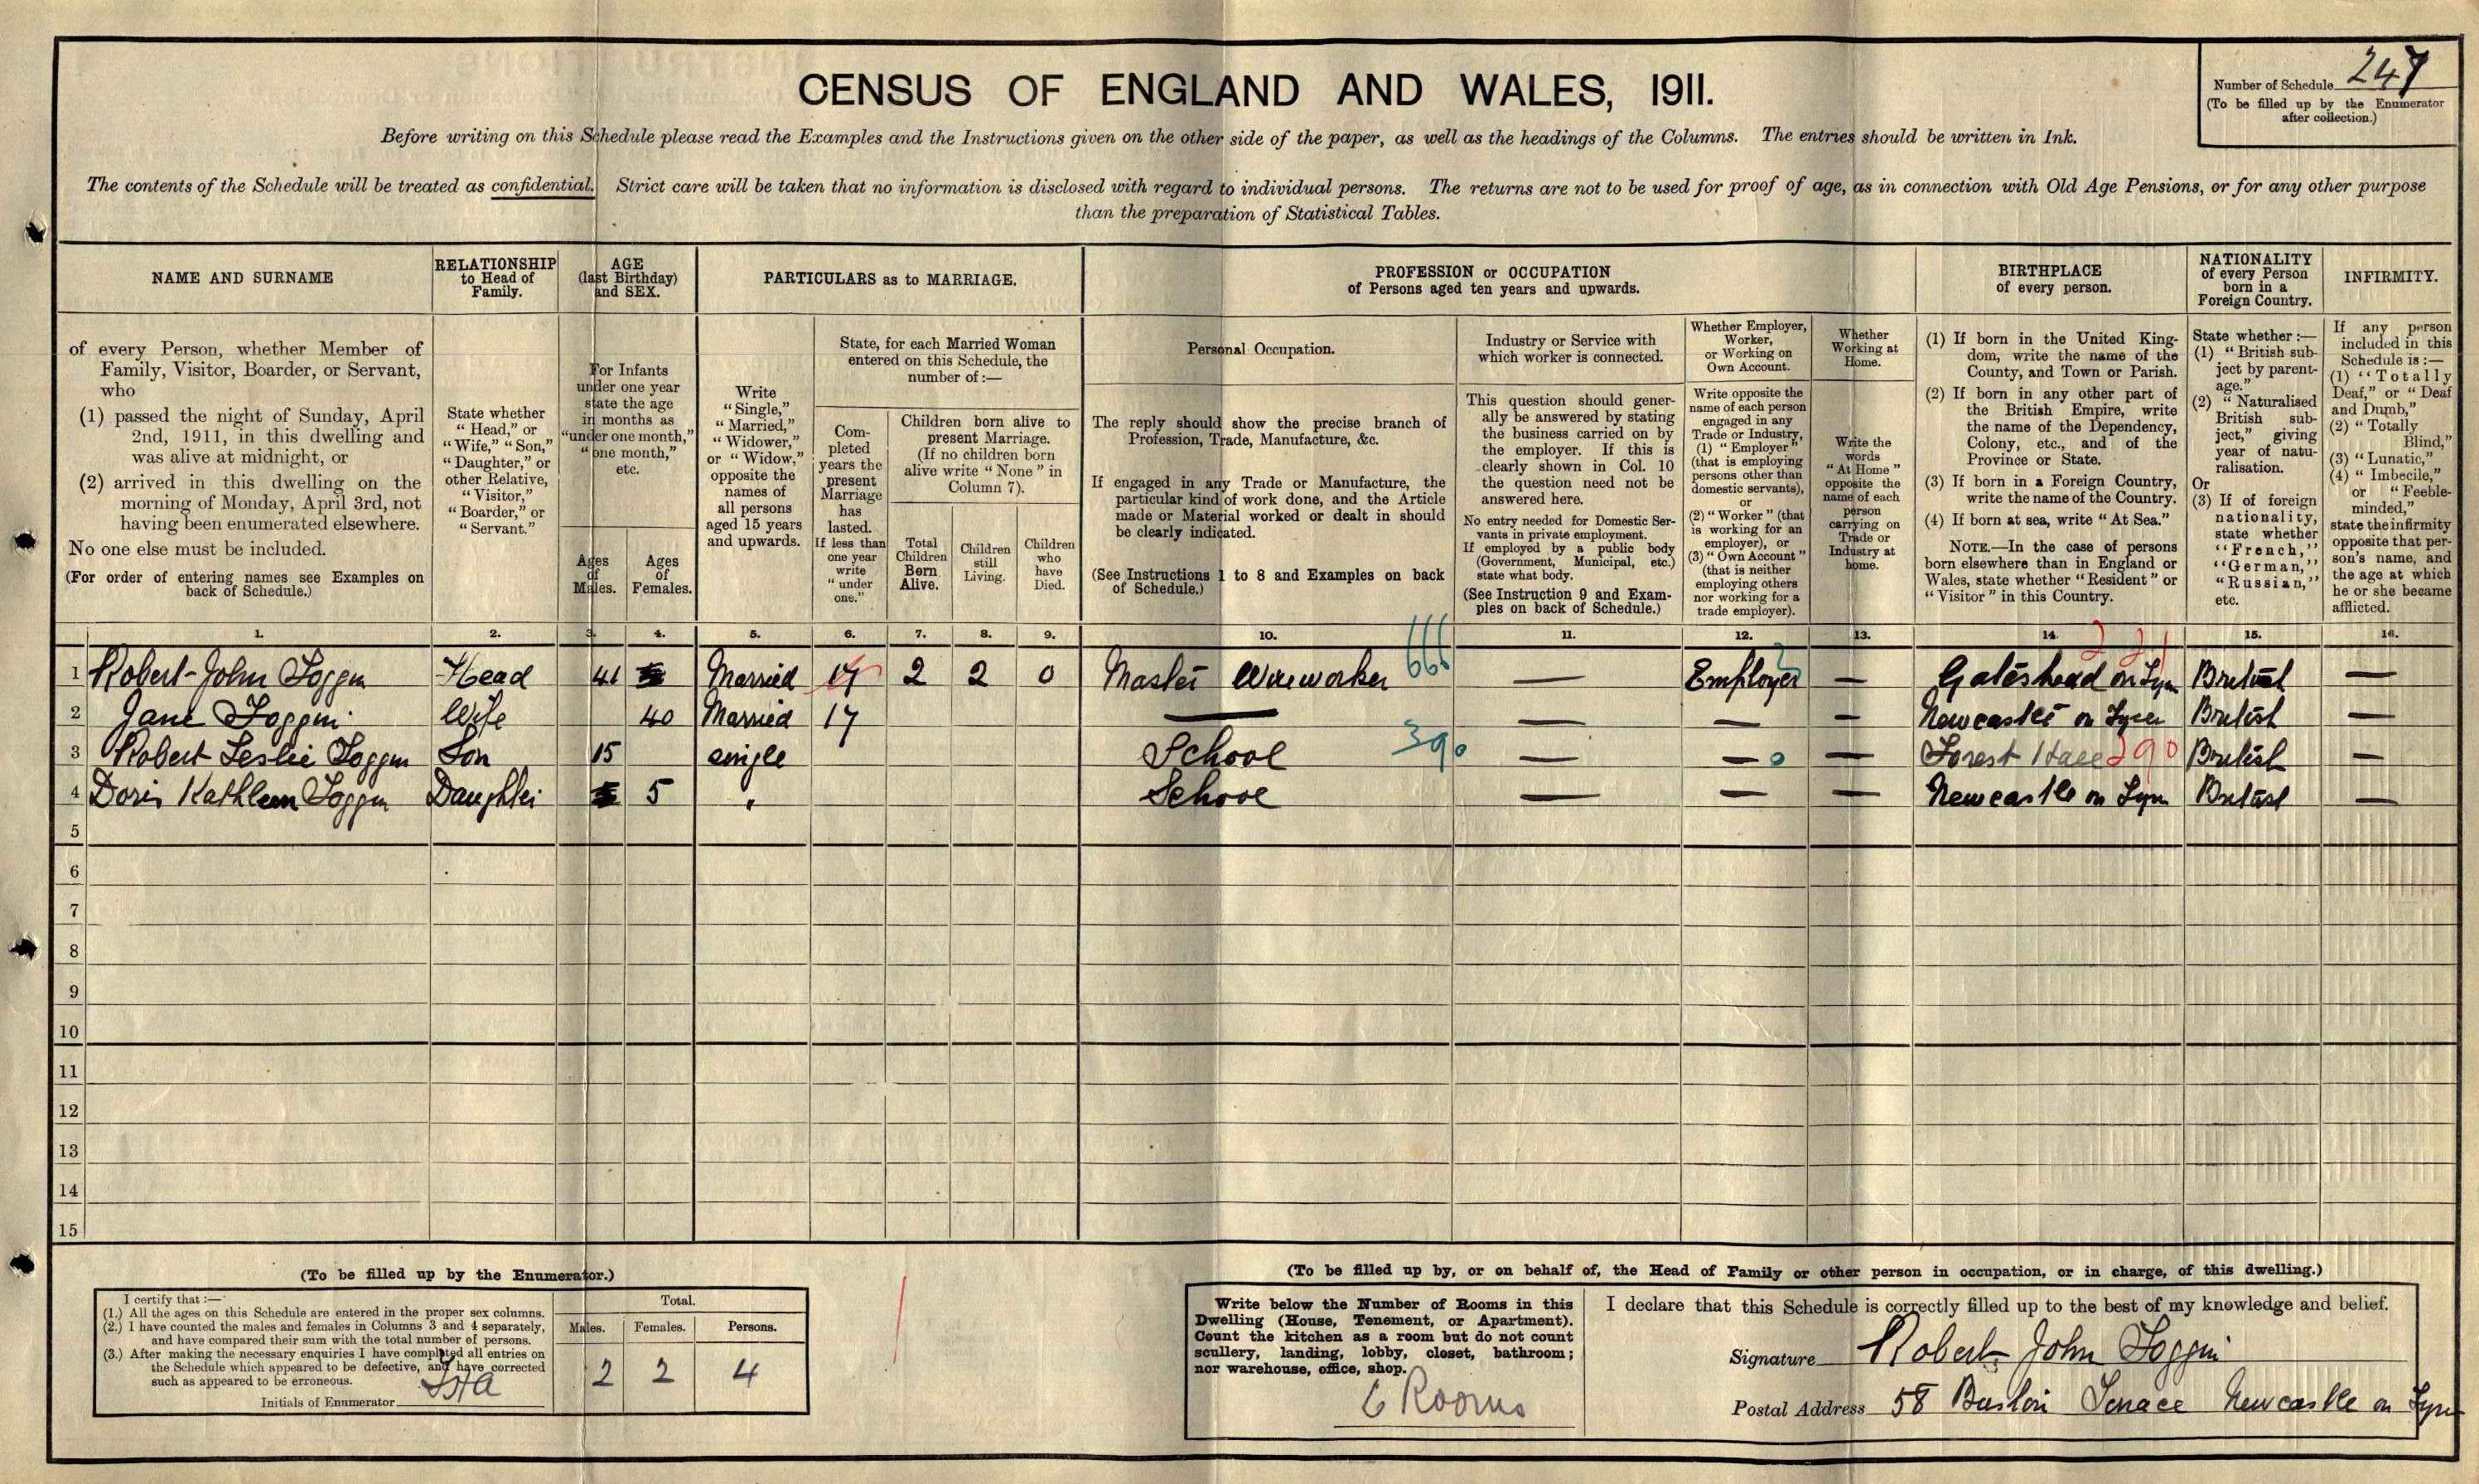 CENSUS OF ENGLAND AND WALES, 1911.
Number of Schedule 247
(To be filled up by the Enumerator
after collection.)
Before writing on this Schedule please read the Examples and the Instructions given on the other side of the paper, as well as the headings of the Columns. The entries should be written in Ink.
The contents of the Schedule will be treated as confidential. Strict care will be taken that no information is disclosed with regard to individual persons. The returns are not to be used for proof of age, as in connection with Old Age Pensions, or for any other purpose
than the preparation of Statistical Tables.
NAME AND SURNAME
of every Person, whether Member of
Family, Visitor, Boarder, or Servant,
who
(1) passed the night of Sunday, April
2nd, 1911, in this dwelling and
was alive at midnight, or
(2) arrived in this dwelling on the
morning of Monday, April 3rd, not
having been enumerated elsewhere.
No one else must be included.
(For order of entering names see Examples on
back of Schedule.)
RELATIONSHIP
to Head of
Family.
State whether
"Head," or
"Wife," "Son,"
"Daughter," or
other Relative,
"Visitor,"
"Boarder," or
"Servant."
AGE
(last Birthday)
and SEX.
For Infants
under one year
state the age
in months as
"under one month,"
"one month,"
etc.
Ages
of
Males.
Ages
of
Females.
PARTICULARS as to MARRIAGE.
Write
"Single,"
"Married,"
"Widower,"
or "Widow,"
opposite the
names of
all persons
aged 15 years
and upwards.
State, for each Married Woman
entered on this Schedule, the
number of :—
Com-
pleted
years the
present
Marriage
has
lasted.
If less than
one year
write
"under
one."
Children born alive to
present Marriage.
(If no children born
alive write "None" in
Column 7).
Total
Children
Born
Alive.
Children
still
Living.
Children
who
have
Died.
PROFESSION or OCCUPATION
of Persons aged ten years and upwards.
Personal Occupation.
The reply should show the precise branch of
Profession, Trade, Manufacture, &c.
If engaged in any Trade or Manufacture, the
particular kind of work done, and the Article
made or Material worked or dealt in should
be clearly indicated.
(See Instructions 1 to 8 and Examples on back
of Schedule.)
Industry or Service with
which worker is connected.
This question should gener-
ally be answered by stating
the business carried on by
the employer. If this is
clearly shown in Col. 10
the question need not be
answered here.
No entry needed for Domestic Ser-
vants in private employment.
If employed by a public body
(Government, Municipal, etc.)
state what body.
(See Instruction 9 and Exam-
ples on back of Schedule.)
Whether Employer,
Worker,
or Working on
Own Account.
Write opposite the
name of each person
engaged in any
Trade or Industry,
(1) "Employer"
(that is employing
persons other than
domestic servants),
or
(2) "Worker" (that
is working for an
employer), or
(3) "Own Account"
(that is neither
employing others
nor working for a
trade employer).
Whether
Working at
Home.
Write the
words
"At Home"
opposite the
name of each
person
carrying on
Trade or
Industry at
home.
BIRTHPLACE
of every person.
(1) If born in the United King-
dom, write the name of the
County, and Town or Parish.
(2) If born in any other part of
the British Empire, write
the name of the Dependency,
Colony, etc., and of the
Province or State.
(3) If born in a Foreign Country,
write the name of the Country.
(4) If born at sea, write "At Sea."
NOTE.—In the case of persons
born elsewhere than in England or
Wales, state whether "Resident" or
"Visitor" in this Country.
NATIONALITY
of every Person
born in a
Foreign Country.
State whether :—
(1) "British sub-
ject by parent-
age."
(2) "Naturalised
British sub-
ject," giving
year of natu-
ralisation.
Or
(3) If of foreign
nationality,
state whether
"French,"
"German,"
"Russian,"
etc.
INFIRMITY.
If any person
included in this
Schedule is :—
(1) "Totally
Deaf," or "Deaf
and Dumb,"
(2) "Totally
Blind,"
(3) "Lunatic,"
(4) "Imbecile,"
or "Feeble-
minded,"
state the infirmity
opposite that per-
son's name, and
the age at which
he or she became
afflicted.
1. 2. 3. 4. 5. 6. 7. 8. 9. 10. 11. 12. 13. 14. 15. 16.
1 Robert John Foggin Head 41 Married 17 2 2 0 Master Wireworker 666 — Employer — Gateshead on Tyne British —
2 Jane Foggin Wife 40 Married 17 — — — — Newcastle on Tyne British —
3 Robert Leslie Foggin Son 15 single School 390 — — 0 — Forest Hall 290 British —
4 Doris Kathleen Foggin Daughter 5 " School — — — Newcastle on Tyne British —
5
6
7
8
9
10
11
12
13
14
15
(To be filled up by the Enumerator.)
I certify that :—
(1.) All the ages on this Schedule are entered in the proper sex columns.
(2.) I have counted the males and females in Columns 3 and 4 separately,
and have compared their sum with the total number of persons.
(3.) After making the necessary enquiries I have completed all entries on
the Schedule which appeared to be defective, and have corrected
such as appeared to be erroneous.
Initials of Enumerator
Total.
Males. Females. Persons.
2 2 4
(To be filled up by, or on behalf of, the Head of Family or other person in occupation, or in charge, of this dwelling.)
Write below the Number of Rooms in this
Dwelling (House, Tenement, or Apartment).
Count the kitchen as a room but do not count
scullery, landing, lobby, closet, bathroom;
nor warehouse, office, shop.
6 Rooms
I declare that this Schedule is correctly filled up to the best of my knowledge and belief.
Signature Robert John Foggin
Postal Address 58 Buston Terrace Newcastle on Tyne